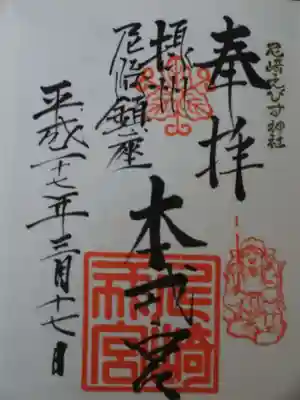 尼崎えびす神社
奉拝
摂州
尼崎鎮座
本戎宮
平成二十七年三月十七日
尼崎
戎宮